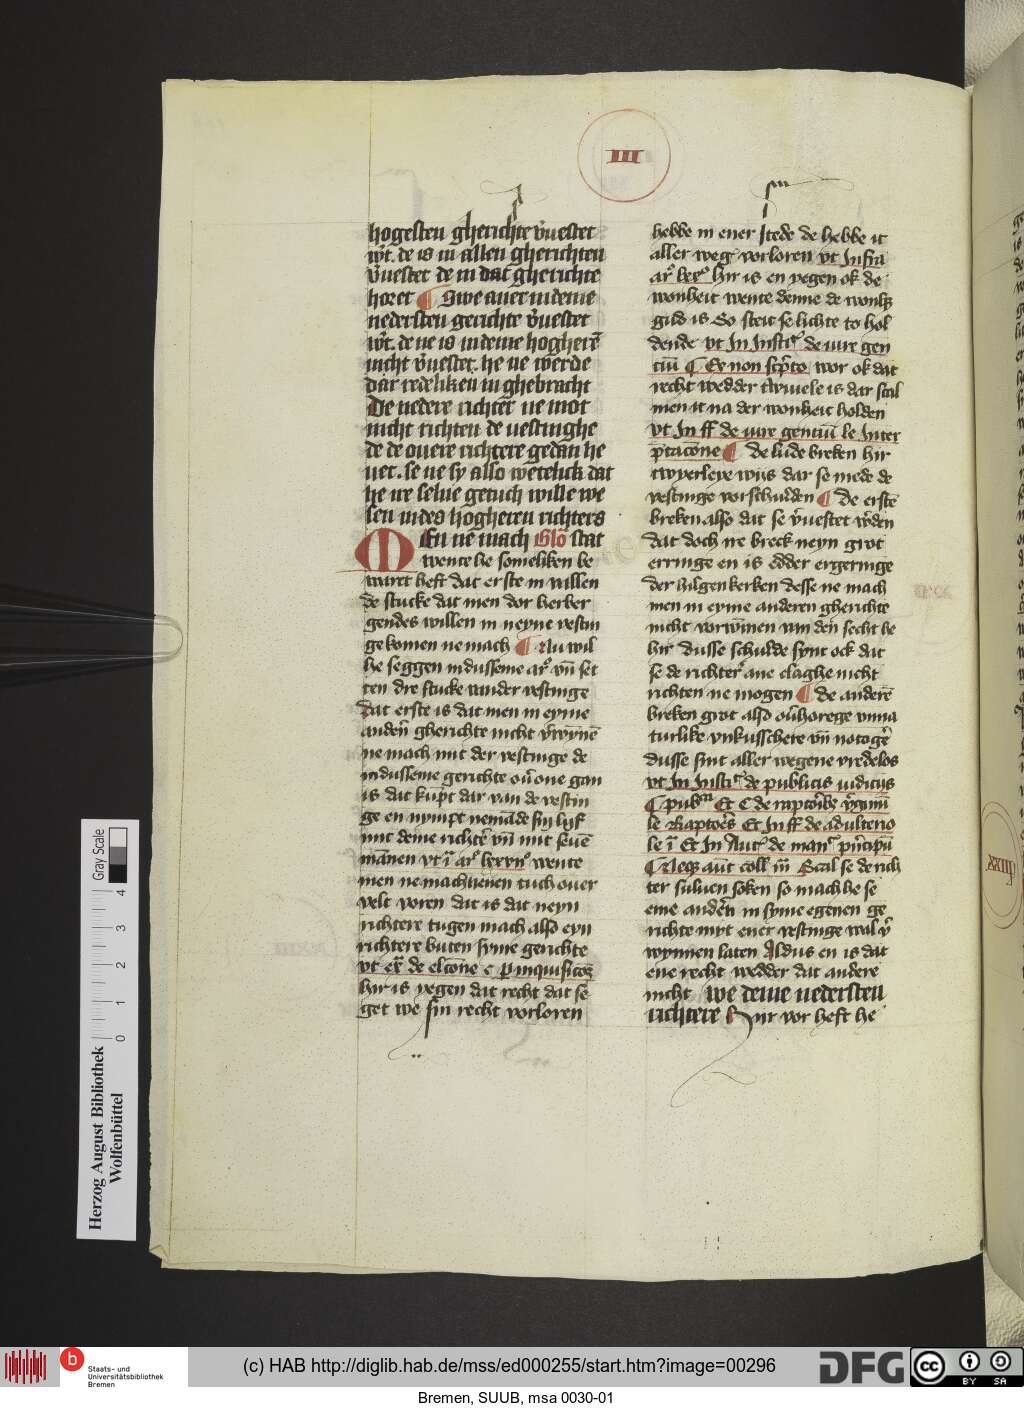 III
hogesten gherichte v̄uestet
w̄t. de is in allen gherichten
v̄uestet de in dat gherichte
horet ¶ Swe auer in deme
nedersten gerichte v̄uestet
w̄t. de ne is in deme hogherē
nicht v̄uestet. he ne werde
dar redeliken in ghebracht
De nedere richter̄ ne mot
nicht richten de uestinghe
de de ouere richtere gedan he
uet. se ne sy also wetelick dat
he ne selue getuch wille we
sen in des hogheren richters
MEn nē mach Glō stat
wente he someliken be
waret heft dat erste in willen
de stucke dat men dor herber
gendes willen in neyne vestin
ge komen ne mach ¶ Nu wil
he seggen in dusseme ar̄ vn̄ set
ten dre stucke van der vestinge
dat erste is dat men in eyme
anden̄ gherichte nicht v̄wynē
ne mach mit der vestinge de
in dusseme gerichte ou̅ one gan
is dat kupt dar van de vestin
ge en nympt nemāde sin lyf
mit deme richtē vn̄ mit seuē
mānen vt ī ar̄ lxxv wente
men ne mach nenen tuch ouer
velt voren dat is dat neyn
richtere tugen mach also eyn
richtere buten syme gerichte
vt ex̄ de elcōne c p inquisicoȝ
hir is yegen dat recht dat se
get we sin recht vorloren
hebbe in ener stede de hebbe it
aller weg vorloren vt Infra
ar̄ hir is en yegen ok de
wonheit wente denne de wonh
gud is So steit se lichte to hol
dende vt In Insti de iure gen
ciū ¶ Ex non scp̄to wor ok dat
recht wedder twiuele is dar scal
men it na der wonheit holden
vt In ff de iure genciū le Inter
p̄tacōne ¶ de lude breken hir
twyerleye wijs dar se mede de
vestinge vorschulden ¶ De erstē
breken also dat se v̄uestet w̄den
dat doch ne breck neyn grot
erringe en is edder ergeringe
der hilgen kerken desse ne mach
men in eyme anderen gherichte
nicht vorwīnen van den secht he
hir dusse schulde synt ock dat
se de richter ane claghe nicht
richten ne mogen ¶ de anderē
breken grot also ou̅horege vnna
turlike vnkusschere vn̄ notogē
dusse sint aller wegene vredelos
vt In Insti de publicis iudicijs
¶ pub Et C de raptorib v̄ginū
le Raptores Et In ff de adulterio
le ī Et In Aut de man pn̄cipū
¶ Neq̄ aut coll iij Scal se de rich
ter suluen soken so mach he se
eme anden̄ in syme egenen ge
richte myt ener vestinge wal v̄
wynnen laten Aldus en is dat
ene recht wedder dat andere
nicht we deme nedersten
richtere Hir vor heft he
Herzog August Bibliothek
Wolfenbüttel
Gray Scale
0 1 2 3 4
xxiij
Staats- und
Universitätsbibliothek
Bremen
(c) HAB http://diglib.hab.de/mss/ed000255/start.htm?image=00296
DFG
cc BY SA
Bremen, SUUB, msa 0030-01